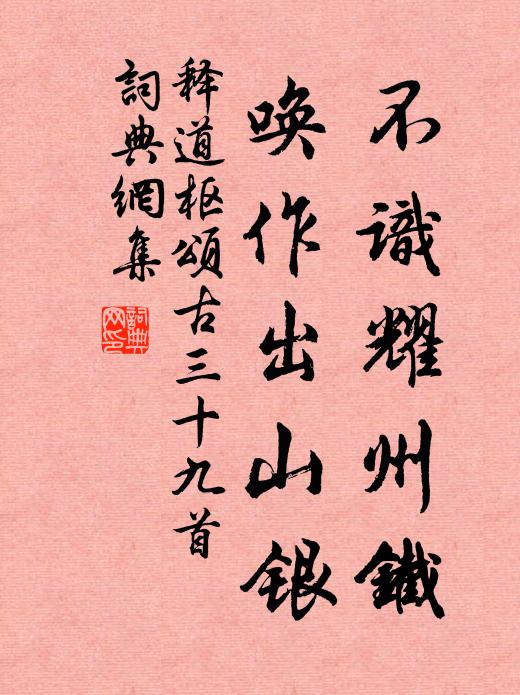 不識耀州鐵
唤作出山银
释道枢頌古三十九首
詞典網集
詞典网印